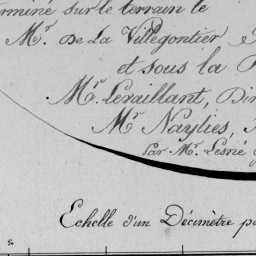 erminé sur le terrain le
Mr. De La Villegontier
et sous la
Mr. Levaillant, Dir
Mr Naylies,
Par Mr. Lesné
Echelle d'un Décimètre po